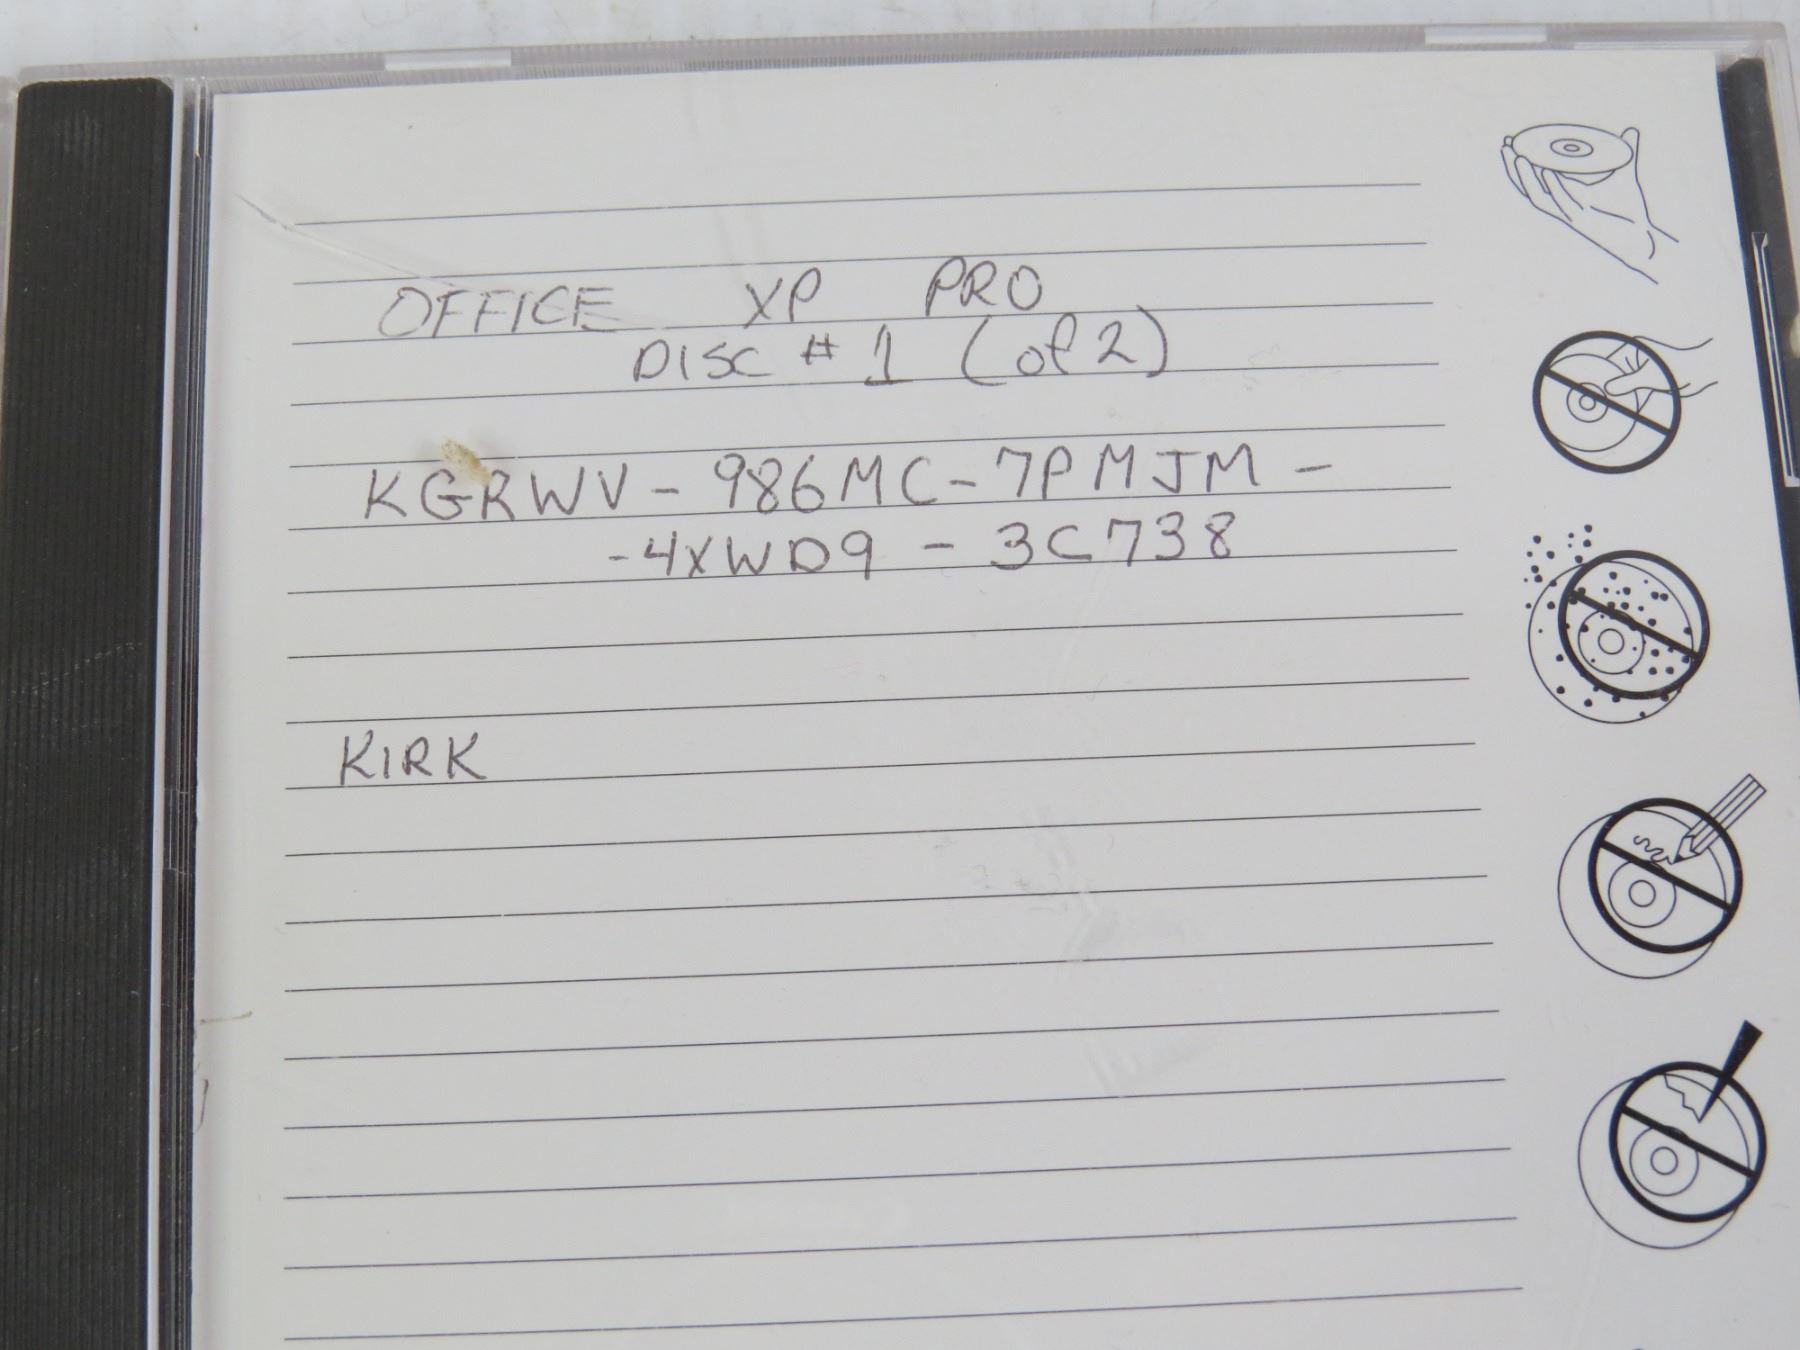 OFFICE XP PRO
DISC # 1 (of 2)
KGRWV - 986MC - 7PMJM -
- 4XWD9 - 3C738
KIRK